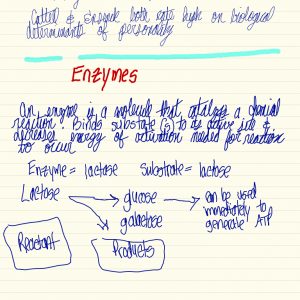 Cattell & Eysenck both rate high on biological
determinants of personality
Enzymes
An enzyme is a molecule that catalyzes a chemical
reaction. Binds substrate(s) to its active site &
decreases energy of activation needed for reaction
to occur
Enzyme = lactase Substrate = lactose
Lactose → glucose → can be used
immediately to
galactose generate ATP
Reactant Products